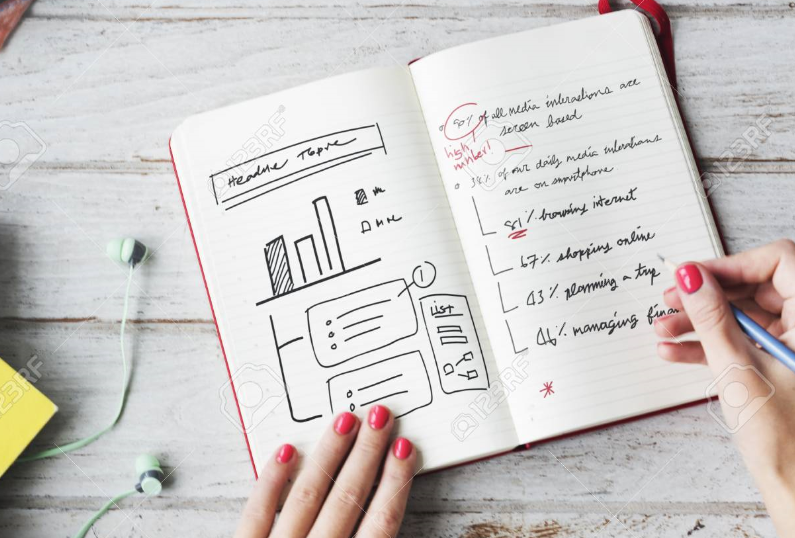 Headline Topic
Me
More
1
LIST
90% of all media interactions are
screen based
high
number!
38% of our daily media interactions
are on smartphone
81% browsing internet
67% shopping online
43% planning a trip
46% managing finan
123RF